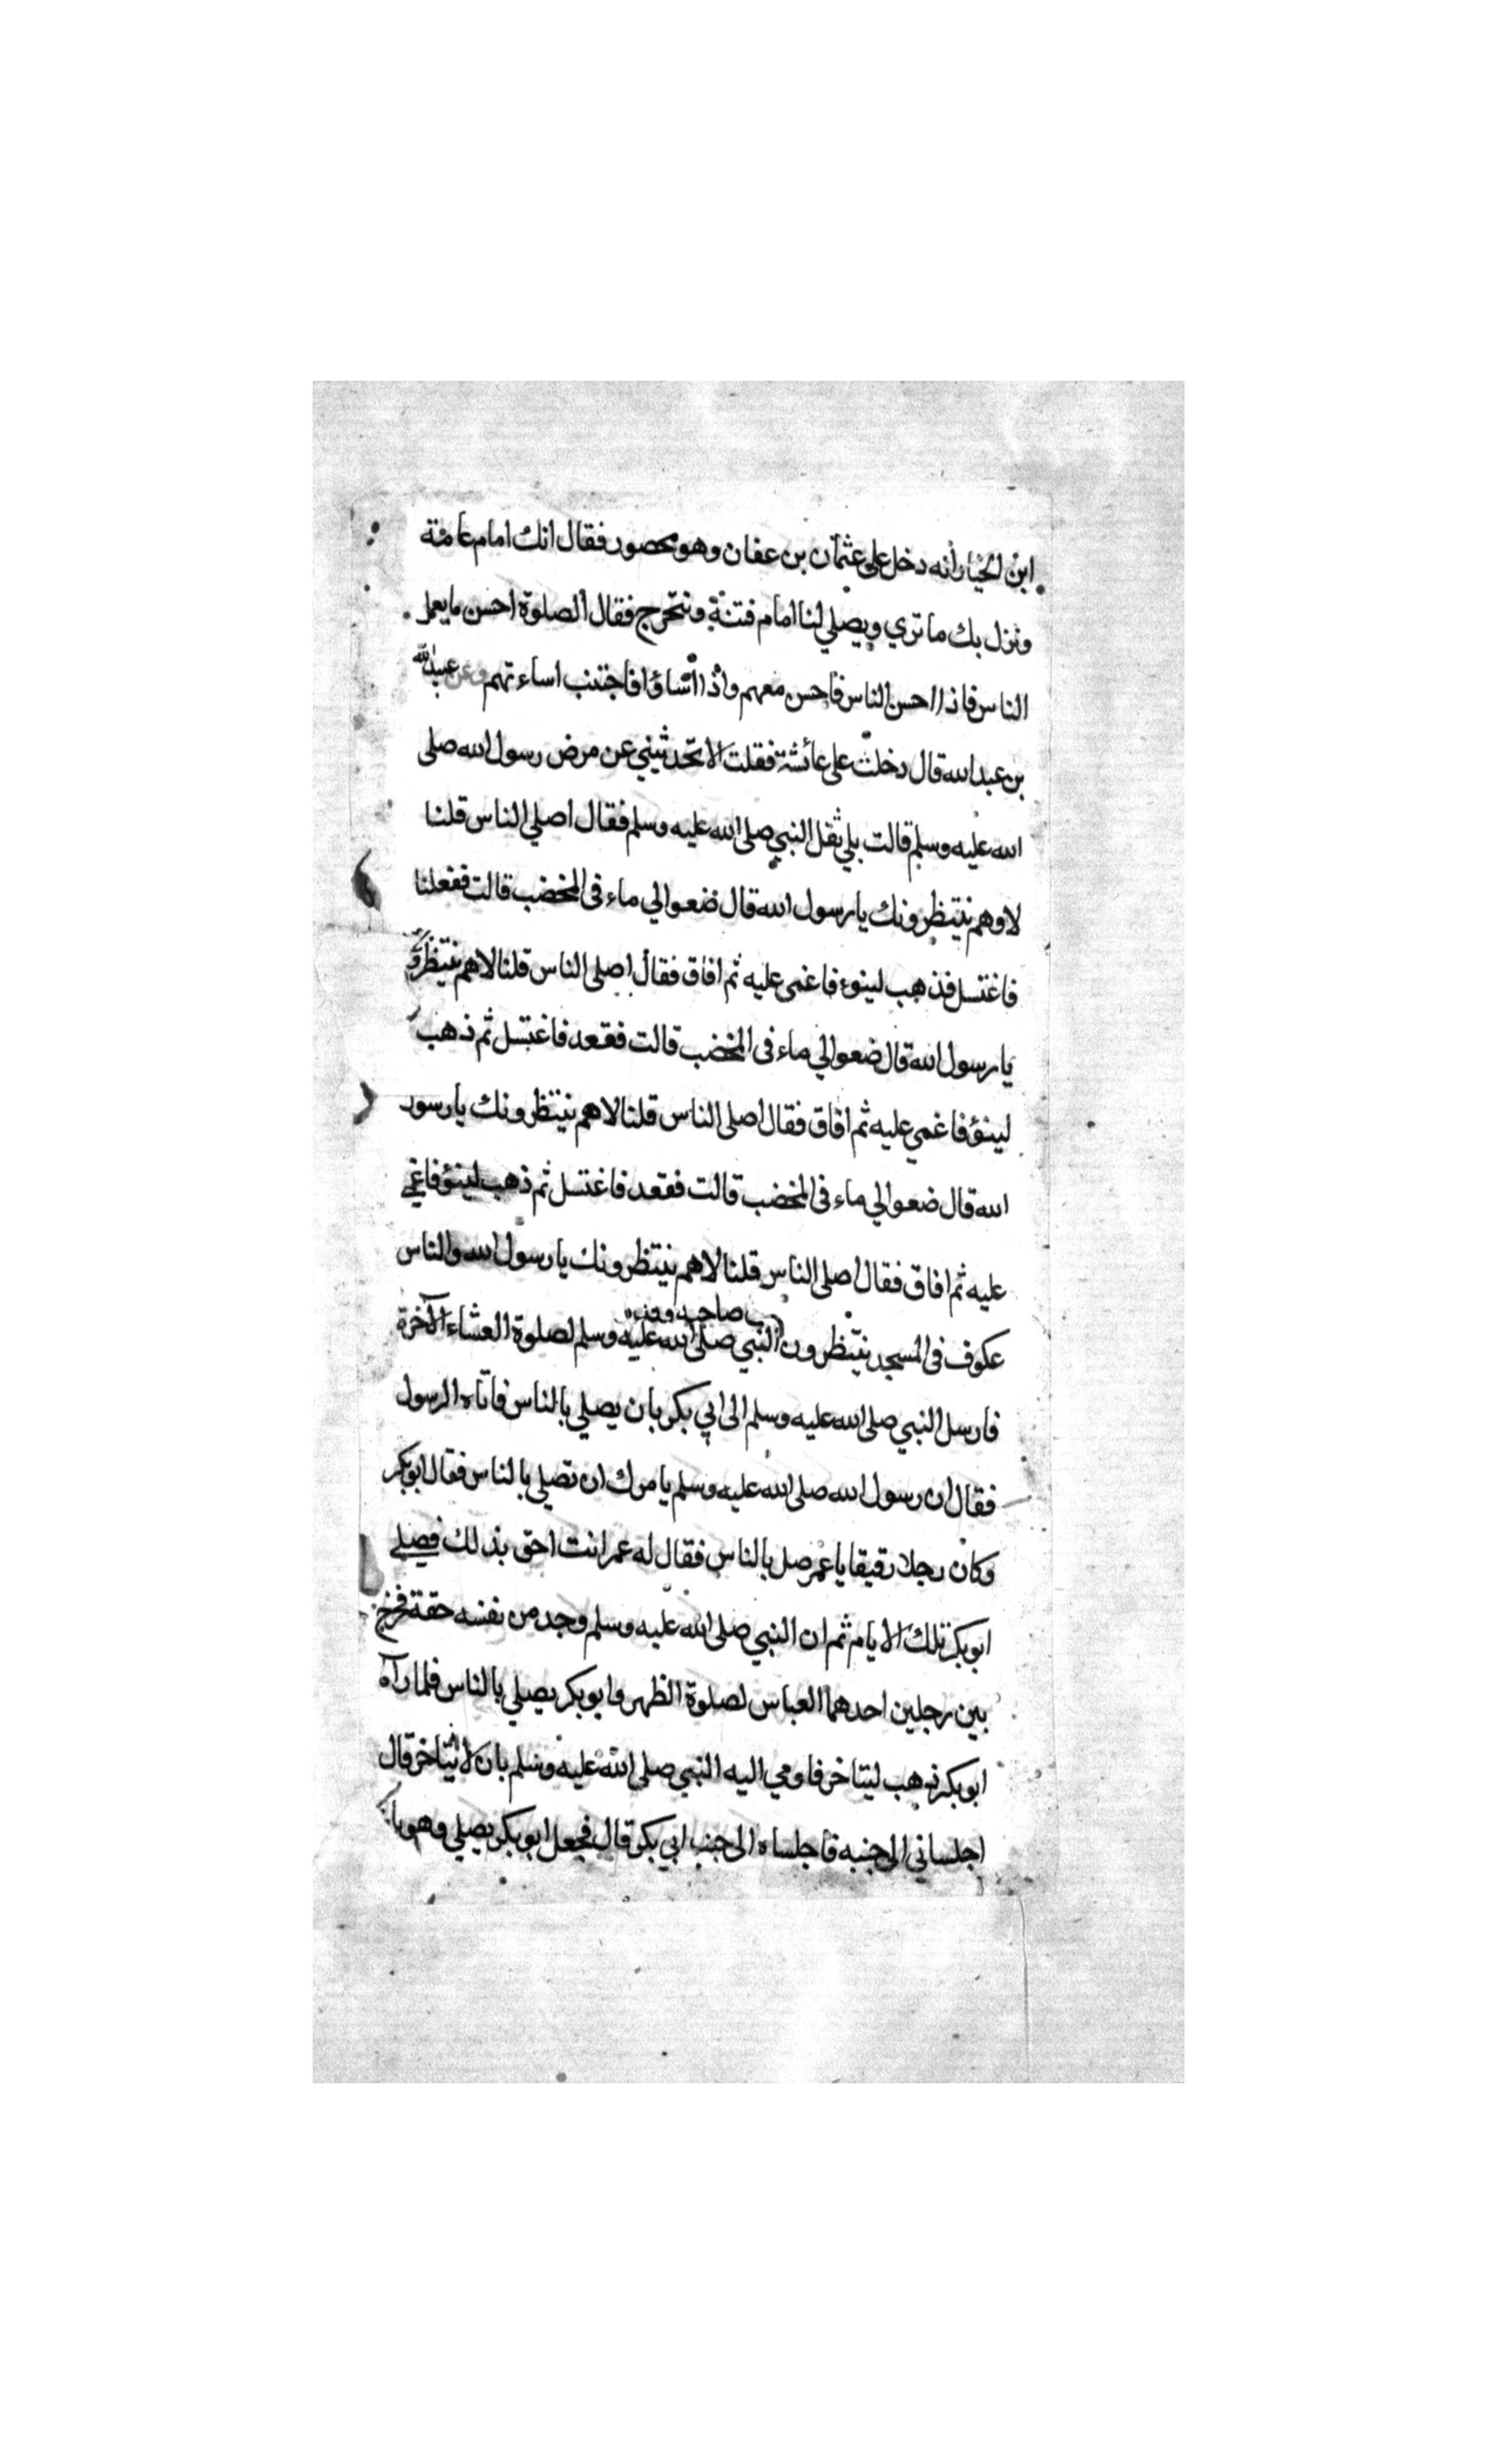 ابن الخيار أنه دخل على عثمان بن عفان وهو محصور فقال انك امام عامة
ونزل بك ما تري ويصلي لنا امام فتنة ونتحرج فقال الصلوة احسن ما يعمل
الناس فاذا احسن الناس فاحسن معهم واذا اشاؤا فاجتنب اساءتهم وعن عبيد الله
بن عبد الله قال دخلت على عائشة فقلت الا تحدثيني عن مرض رسول الله صلى
الله عليه وسلم قالت بلي ثقل النبي صلى الله عليه وسلم فقال اصلي الناس قلنا
لا وهم ينتظرونك يا رسول الله قال ضعوا لي ماء في المخضب قالت ففعلنا
فاغتسل فذهب لينوء فاغمى عليه ثم افاق فقال اصلى الناس قلنا لا هم ينتظرونك
يا رسول الله قال ضعوا لي ماء في المخضب قالت فقعد فاغتسل ثم ذهب
لينؤ فاغمي عليه ثم افاق فقال اصلى الناس قلنا لا هم ينتظرونك يا رسول
الله قال ضعوا لي ماء في المخضب قالت فقعد فاغتسل ثم ذهب لينؤ فاغمي
عليه ثم افاق فقال اصلى الناس قلنا لا هم ينتظرونك يا رسول الله والناس
عكوف في المسجد ينتظرون النبي صلى الله عليه وسلم لصلوة العشاء الآخرة
فارسل النبي صلى الله عليه وسلم الى ابي بكر بان يصلي بالناس فاتاه الرسول
فقال ان رسول الله صلى الله عليه وسلم يامرك ان تصلي بالناس فقال ابو بكر
وكان رجلا رقيقا يا عمر صل بالناس فقال له عمر انت احق بذلك فصلي
ابو بكر تلك الايام ثم ان النبي صلى الله عليه وسلم وجد من نفسه خفة فخرج
بين رجلين احدهما العباس لصلوة الظهر وابو بكر يصلي بالناس فلما رآه
ابو بكر ذهب ليتاخر فاومي اليه النبي صلى الله عليه وسلم بان لا يتاخر قال
اجلساني الى جنبه فاجلساه الى جنب ابي بكر قال فجعل ابو بكر يصلي وهو